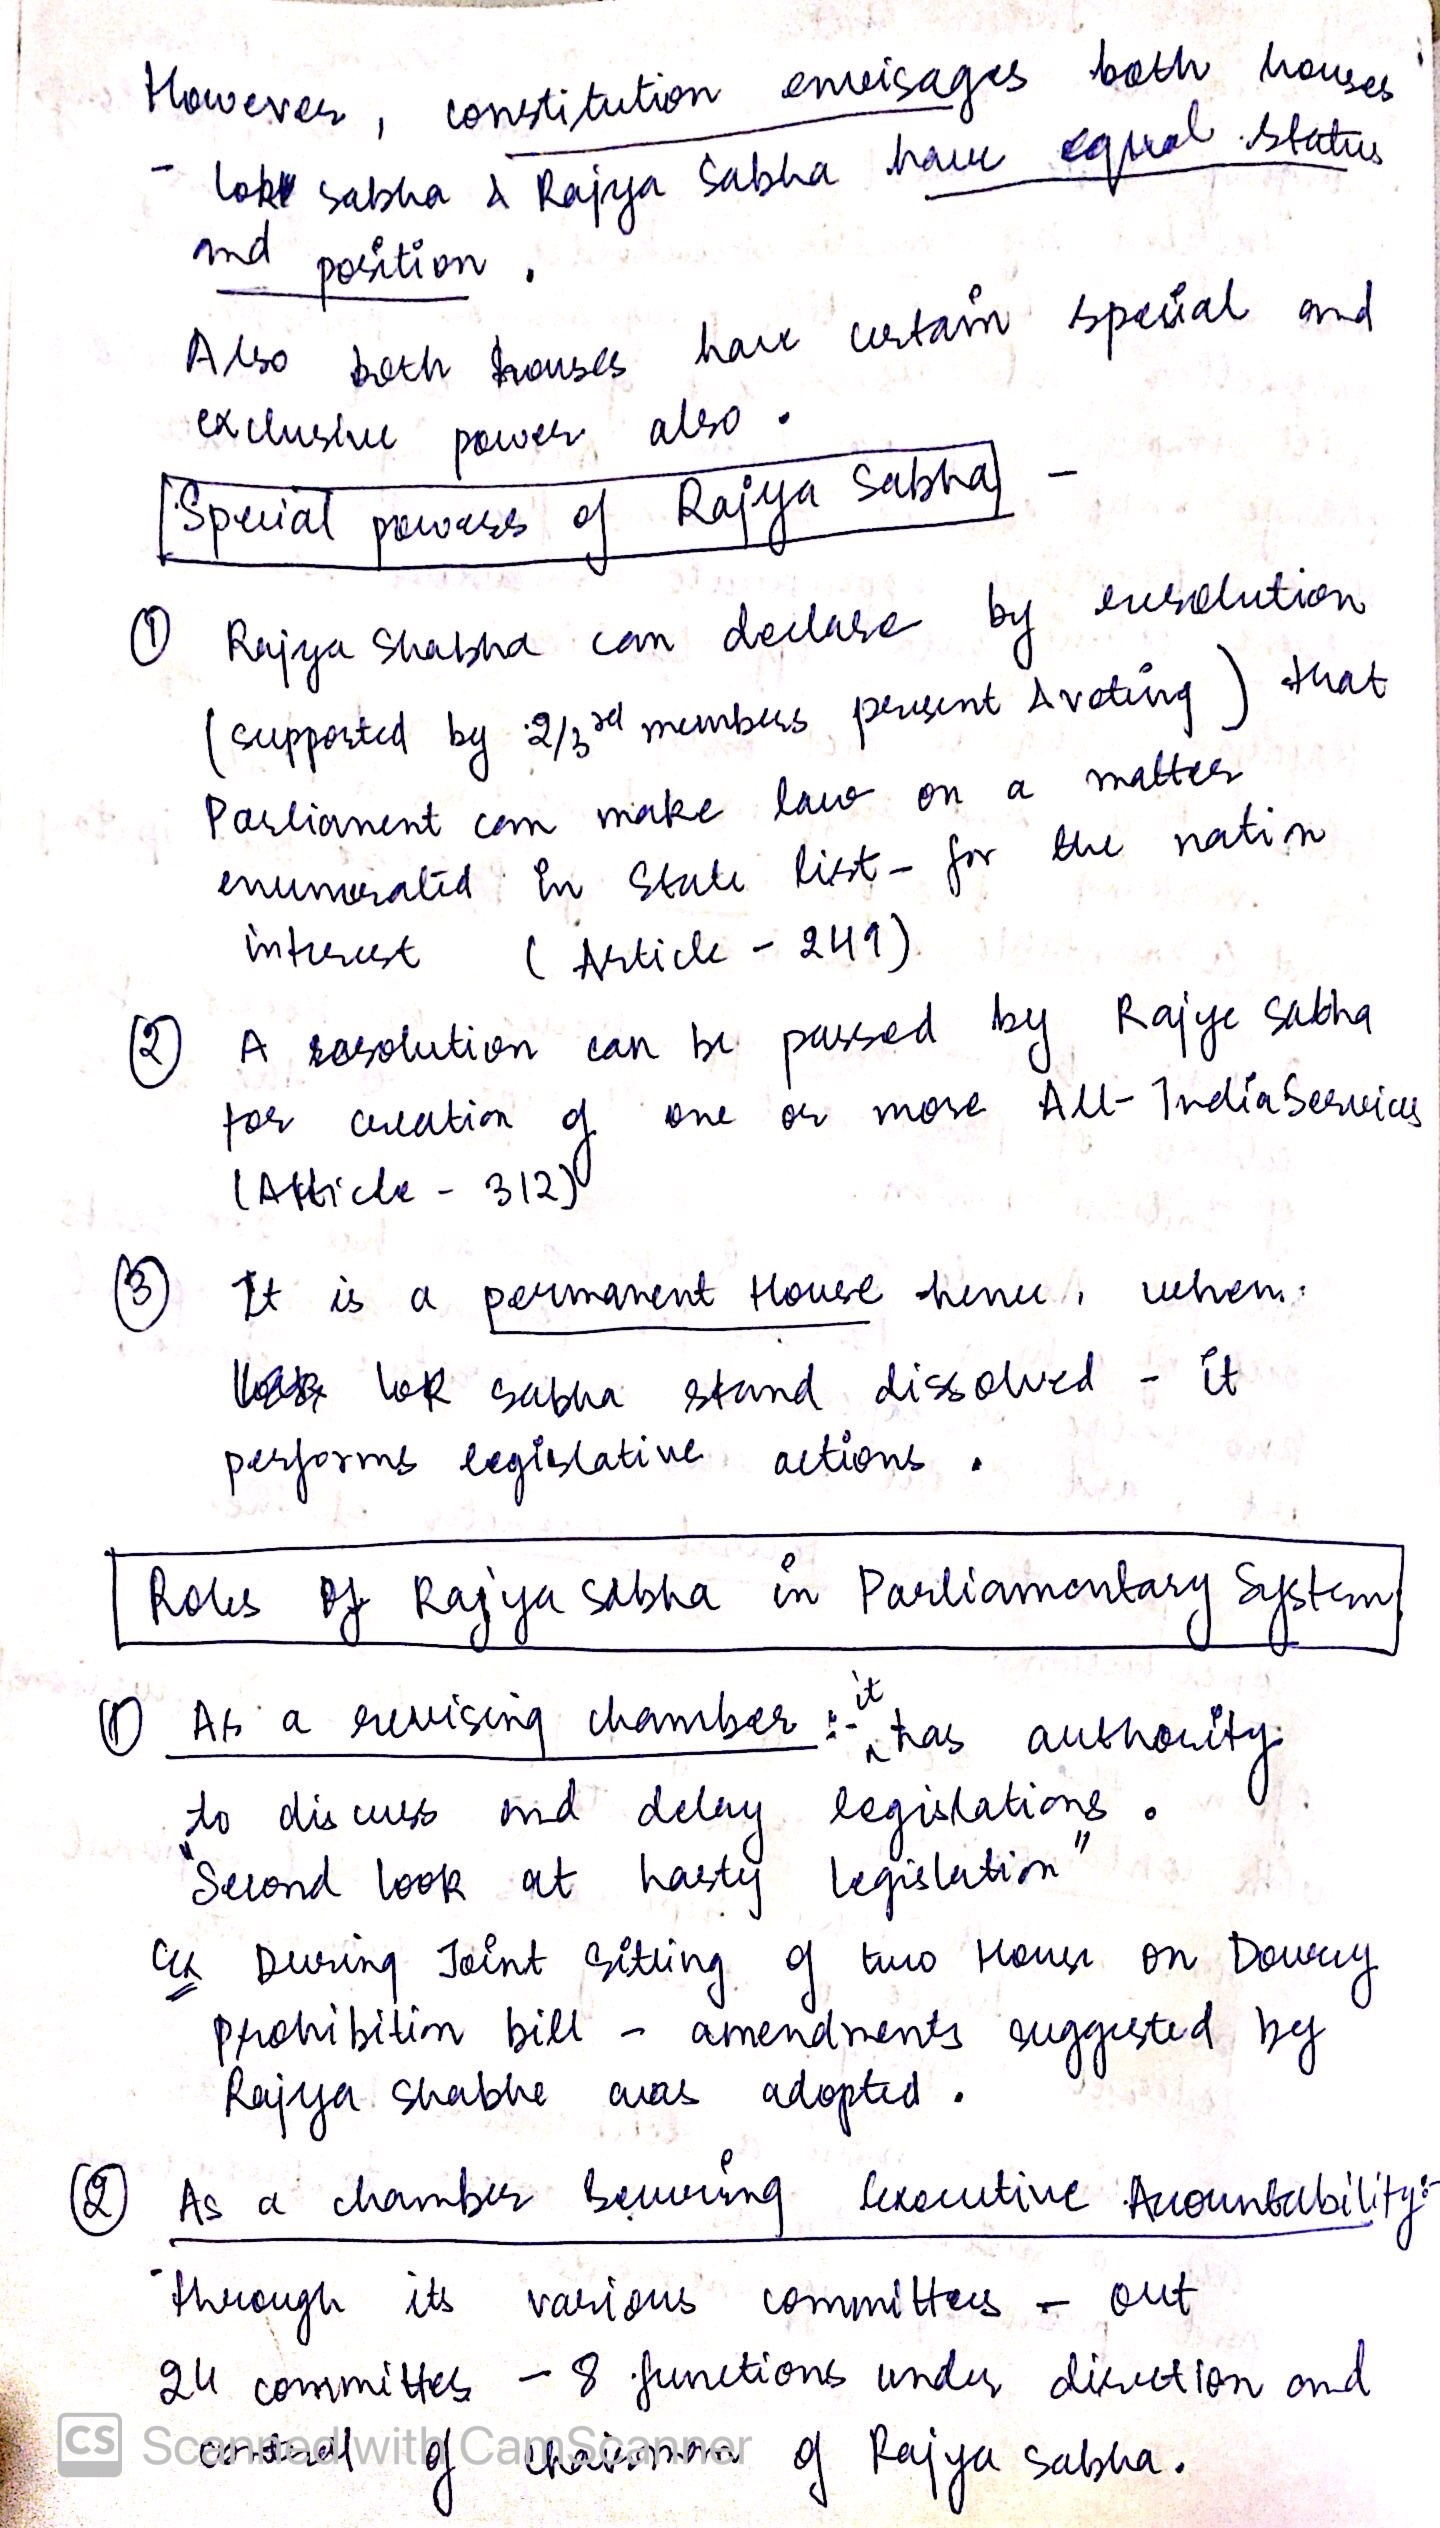 However, constitution envisages both houses
- lok sabha & Rajya Sabha have equal status
and position.
Also both houses have certain special and
exclusive power also.
Special powers of Rajya Sabha -
① Rajya Shabha can declare by resolution
(supported by 2/3rd members present & voting) that
Parliament can make law on a matter
enumerated in State list - for the nation
interest (Article - 249)
② A resolution can be passed by Rajya Sabha
for creation of one or more All-India Services
(Article - 312)
③ It is a permanent House hence, when
lok sabha stand dissolved - it
performs legislative actions.
Roles of Rajya Sabha in Parliamentary System
① As a revising chamber :- it has authority
to discuss and delay legislations.
"Second look at hasty legislation"
Ex During Joint Sitting of two House on Dowry
prohibition bill - amendments suggested by
Rajya Shabha was adopted.
② As a chamber securing Executive Accountability:-
through its various committees - out
24 committes - 8 functions under direction and
control of Chairman of Rajya Sabha.
CS Scanned with CamScanner